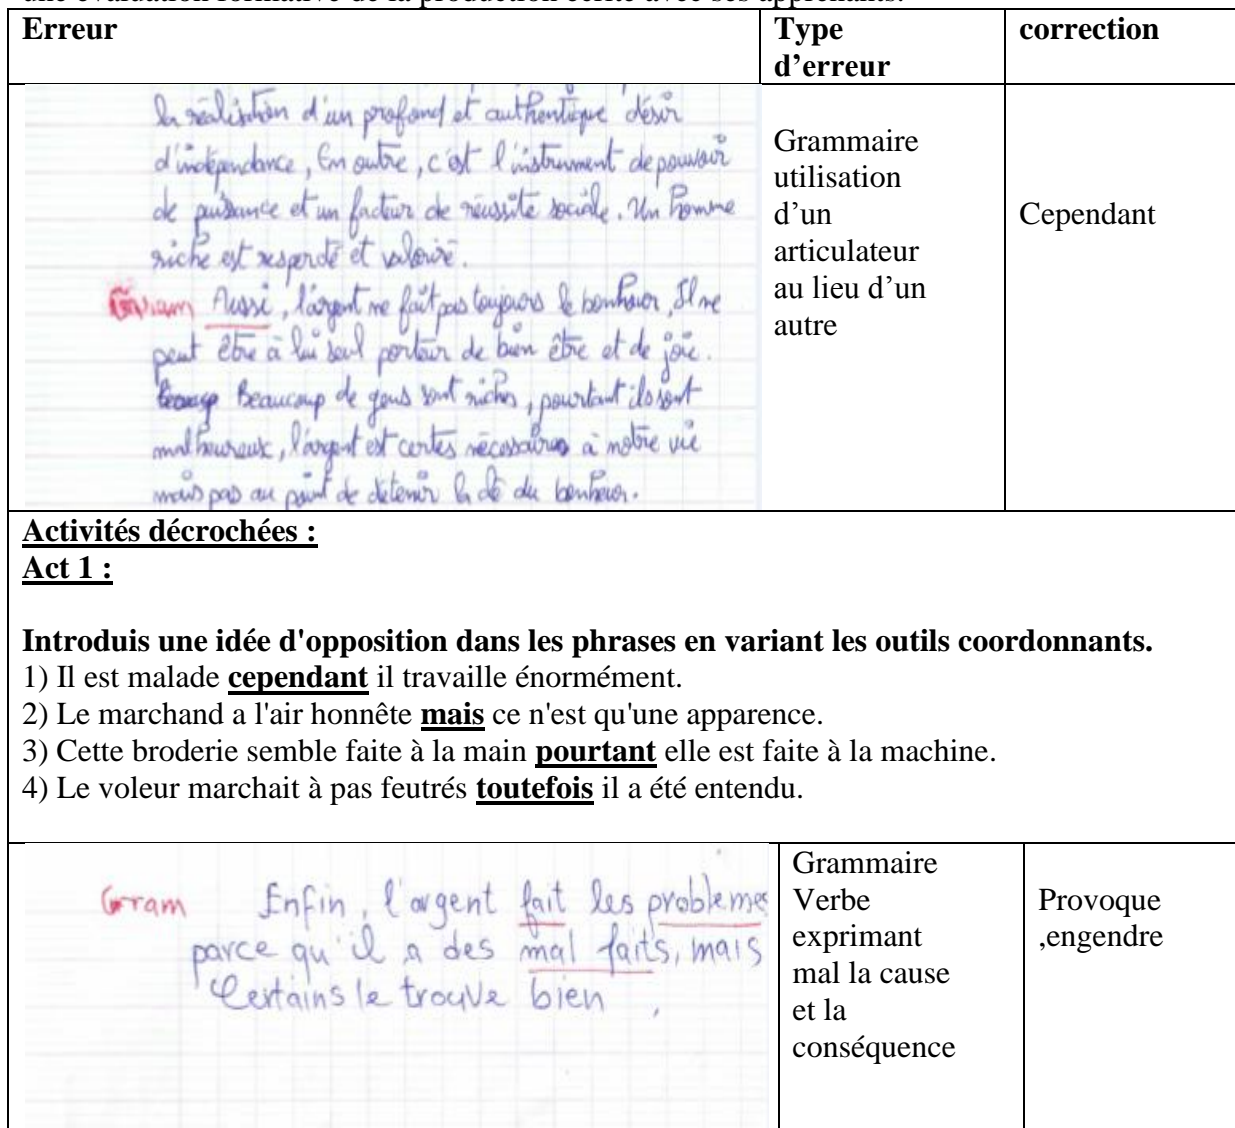 une évaluation formative de la production écrite avec ses apprenants.
Erreur
Type
d’erreur
correction
la réalisation d'un profond et authentique désir
d'indépendance, En outre, c'est l'instrument de pouvoir
de puissance et un facteur de réussite sociale. Un homme
riche est et valorisé.
Gram Aussi, l'argent ne fait pas toujours le bonheur, Il ne
peut être à lui seul porteur de bien être et de joie.
Beaucoup de gens sont riches, pourtant ils sont
malheureux, l'argent est certes nécessaires à notre vie
mais pas au point de détenir la clé du bonheur.
Grammaire
utilisation
d’un
articulateur
au lieu d’un
autre
Cependant
Activités décrochées :
Act 1 :
Introduis une idée d'opposition dans les phrases en variant les outils coordonnants.
1) Il est malade cependant il travaille énormément.
2) Le marchand a l'air honnête mais ce n'est qu'une apparence.
3) Cette broderie semble faite à la main pourtant elle est faite à la machine.
4) Le voleur marchait à pas feutrés toutefois il a été entendu.
Gram Enfin, l'argent fait les problemes
parce qu'il a des mal faits, mais
Certains le trouve bien ,
Grammaire
Verbe
exprimant
mal la cause
et la
conséquence
Provoque
,engendre